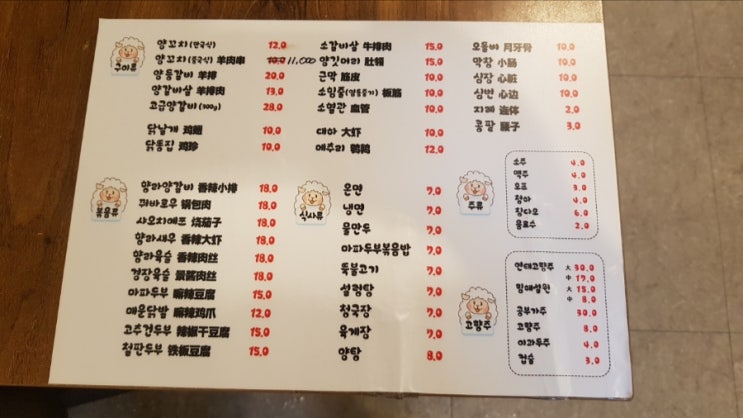 구이류
양꼬치 (한국식) 12.0
양꼬치 (중국식) 羊肉串 10.0 11,000
양등갈비 羊排 20.0
양갈비살 羊排肉 13.0
고급양갈비 (300g) 28.0
닭날개 鸡翅 10.0
닭똥집 鸡珍 10.0
소갈비살 牛排肉 15.0
양깃머리 肚领 15.0
근막 筋皮 10.0
소힘줄 板筋 10.0
소혈관 血管 10.0
대하 大虾 10.0
메추리 鹌鹑 12.0
오돌비 月牙骨 10.0
막창 小肠 10.0
심장 心脏 10.0
심변 心边 10.0
지례 连体 2.0
콩팥 腰子 3.0
볶음류
향라양갈비 香辣小排 18.0
꿔바로우 锅包肉 18.0
샤오치에즈 烧茄子 18.0
향라새우 香辣大虾 18.0
향라육슬 香辣肉丝 18.0
경장육슬 京酱肉丝 18.0
마파두부 嘛辣豆腐 15.0
매운닭발 嘛辣鸡爪 12.0
고추건두부 辣椒干豆腐 15.0
철판두부 铁板豆腐 15.0
식사류
온면 7.0
냉면 7.0
물만두 7.0
마파두부볶음밥 7.0
뚝불고기 7.0
설렁탕 7.0
청국장 7.0
육계장 7.0
양탕 8.0
주류
소주 4.0
맥주 4.0
오프 3.0
청하 4.0
칭다오 6.0
음료수 2.0
고량주
연태고량주 大 30.0
中 17.0
大 15.0
中 8.0
공부가주 30.0
고량주 8.0
이과두주 4.0
컵술 3.0